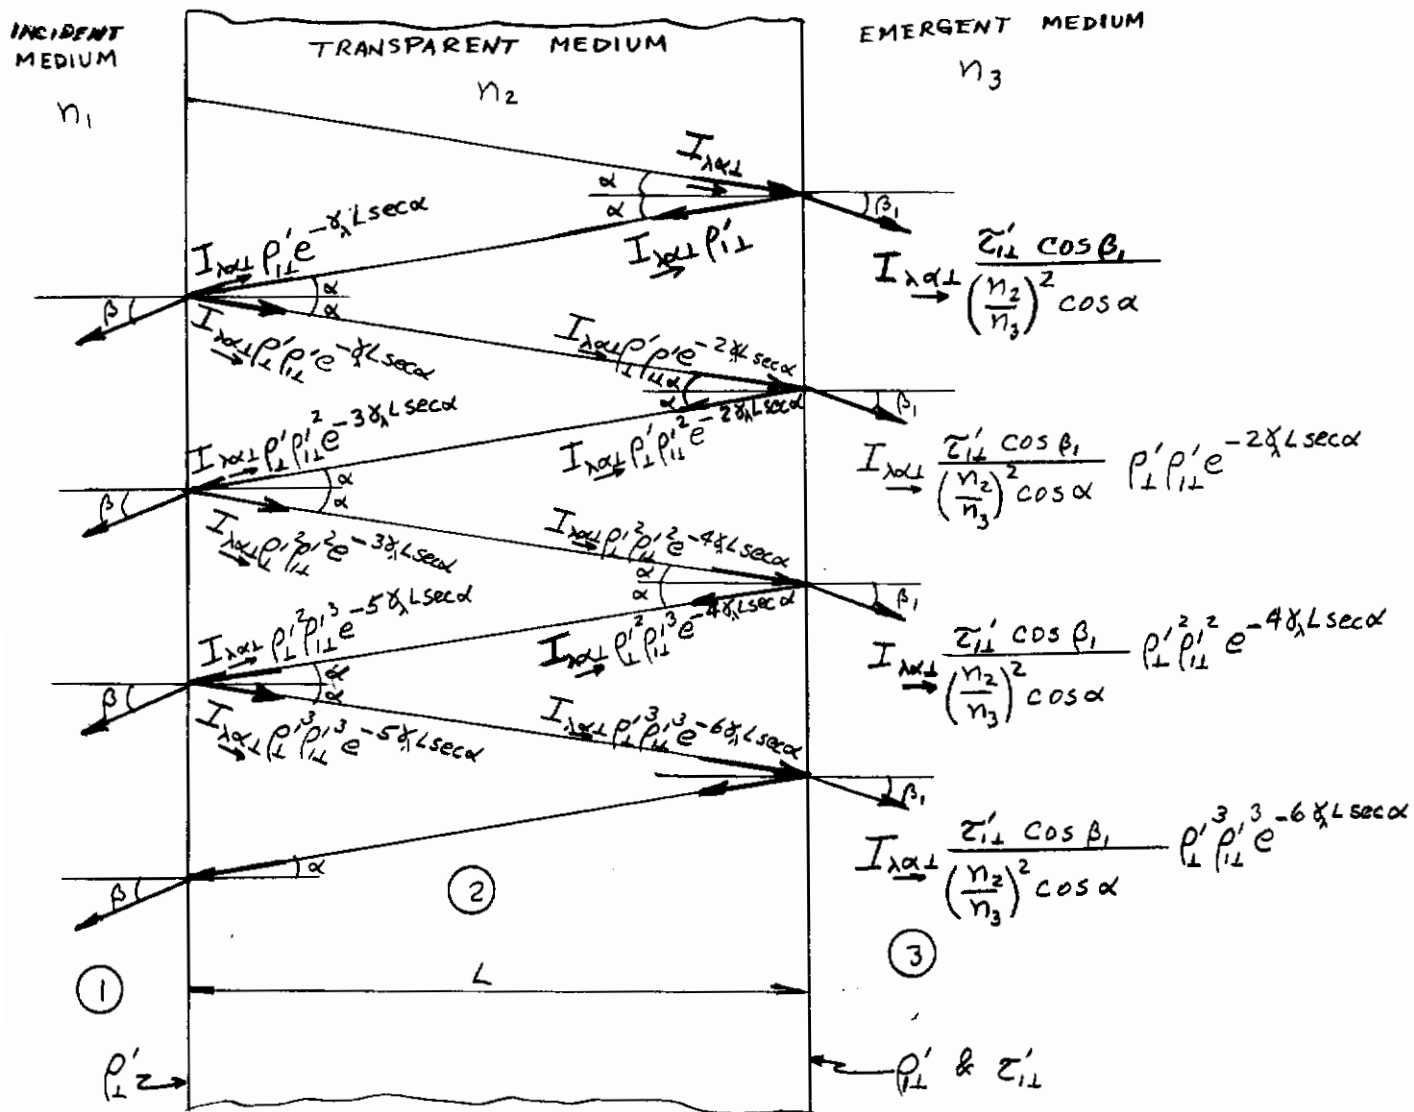 INCIDENT MEDIUM
TRANSPARENT MEDIUM
EMERGENT MEDIUM
n₁
n₂
n₃
I_λα⊥
α
α
β₁
I_λα⊥ ρ'₁⊥
I_λα⊥ τ'₁⊥ cos β₁ / (n₂/n₃)² cos α
I_λα⊥ ρ'₁⊥ e^-γ_λ L sec α
β
α
α
I_λα⊥ ρ'⊥ ρ'₁⊥ e^-γ_λ L sec α
I_λα⊥ ρ'⊥ ρ'₁⊥ e^-2γ_λ L sec α
α
α
β₁
I_λα⊥ ρ'⊥ ρ'₁⊥² e^-2γ_λ L sec α
I_λα⊥ τ'₁⊥ cos β₁ / (n₂/n₃)² cos α ρ'⊥ ρ'₁⊥ e^-2γ_λ L sec α
I_λα⊥ ρ'⊥ ρ'₁⊥² e^-3γ_λ L sec α
β
α
α
I_λα⊥ ρ'⊥² ρ'₁⊥² e^-3γ_λ L sec α
I_λα⊥ ρ'⊥² ρ'₁⊥² e^-4γ_λ L sec α
α
α
β₁
I_λα⊥ ρ'⊥² ρ'₁⊥³ e^-4γ_λ L sec α
I_λα⊥ τ'₁⊥ cos β₁ / (n₂/n₃)² cos α ρ'⊥² ρ'₁⊥² e^-4γ_λ L sec α
I_λα⊥ ρ'⊥² ρ'₁⊥³ e^-5γ_λ L sec α
β
α
α
I_λα⊥ ρ'⊥³ ρ'₁⊥³ e^-5γ_λ L sec α
I_λα⊥ ρ'⊥³ ρ'₁⊥³ e^-6γ_λ L sec α
β₁
I_λα⊥ τ'₁⊥ cos β₁ / (n₂/n₃)² cos α ρ'⊥³ ρ'₁⊥³ e^-6γ_λ L sec α
β
α
②
③
①
L
ρ'⊥
ρ'₁⊥ & τ'₁⊥